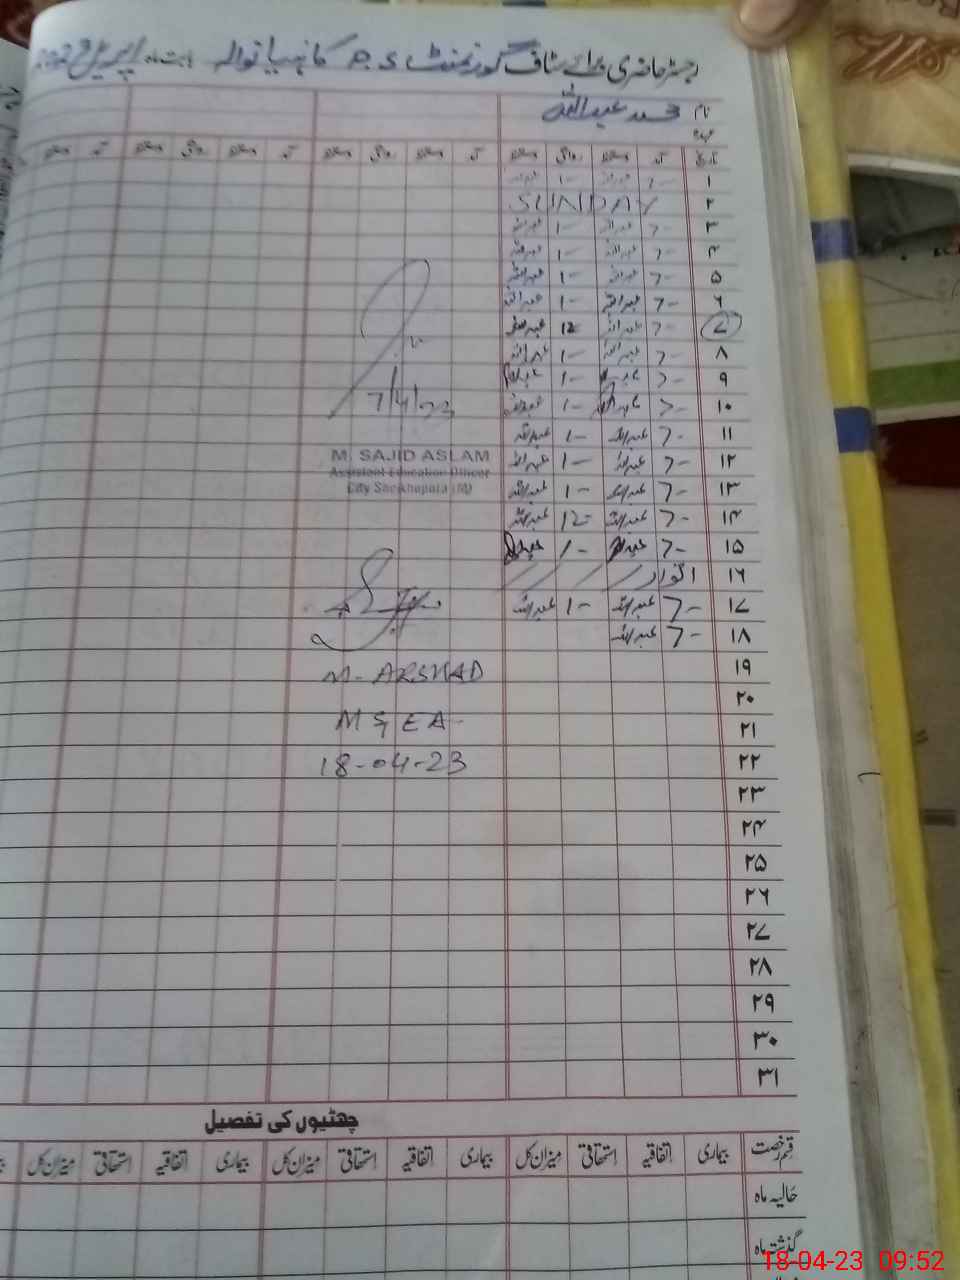 رجسٹر حاضری برائے سٹاف گورنمنٹ P.S کانہیانوالہ بابت ماہ اپریل 2023
نام محمد عبداللہ
عہدہ
تاریخ آمد دستخط روانگی دستخط آمد دستخط روانگی دستخط آمد دستخط روانگی دستخط آمد دستخط
۱ 7- عبداللہ 1- عبداللہ
۲ SUNDAY
۳ 7- عبداللہ 1- عبداللہ
۴ 7- عبداللہ 1- عبداللہ
۵ 7- عبداللہ 1- عبداللہ
۶ 7- عبداللہ 1- عبداللہ
۷ 7- عبداللہ 12 عبداللہ
۸ 7- عبداللہ 1- عبداللہ
۹ 7- 1-
۱۰ 7- 1- عبداللہ
7/4/23
۱۱ 7- عبداللہ 1- عبداللہ
۱۲ 7- عبداللہ 1- عبداللہ
M. SAJID ASLAM
Assistant Education Officer
City Sheikhupura (M)
۱۳ 7- عبداللہ 1- عبداللہ
۱۴ 7- عبداللہ 12- عبداللہ
۱۵ 7- عبداللہ 1- عبداللہ
۱۶ اتوار
۱۷ 7- عبداللہ 1- عبداللہ
۱۸ 7- عبداللہ
۱۹
M. ARSHAD
۲۰
۲۱
MGEA
۲۲
18-04-23
۲۳
۲۴
۲۵
۲۶
۲۷
۲۸
۲۹
۳۰
۳۱
چھٹیوں کی تفصیل
قسم رخصت بیماری اتفاقیہ استحقاقی میزان کل بیماری اتفاقیہ استحقاقی میزان کل بیماری اتفاقیہ استحقاقی میزان کل
حالیہ ماہ
گذشتہ ماہ
18-04-23 09:52